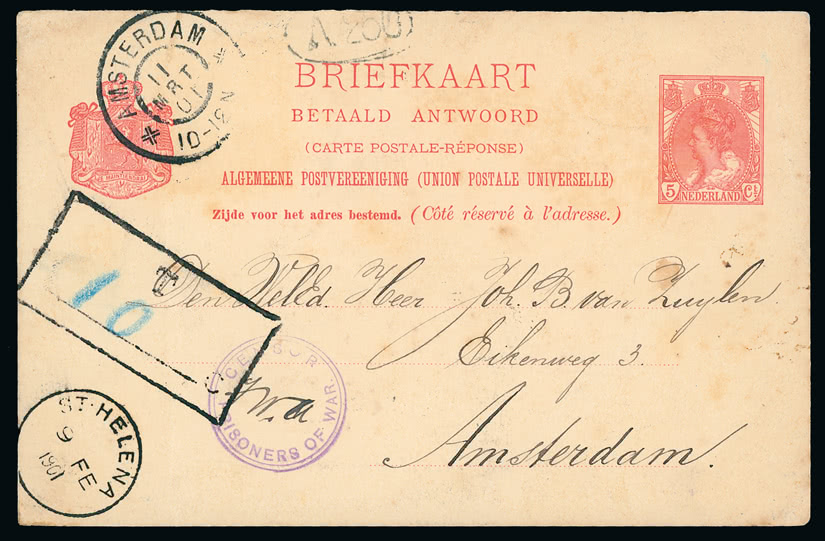 A 250
AMSTERDAM
11
MRT
01
10-12N
BRIEFKAART
BETAALD ANTWOORD
(CARTE POSTALE-RÉPONSE)
ALGEMEENE POSTVEREENIGING (UNION POSTALE UNIVERSELLE)
Zijde voor het adres bestemd. (Côté réservé à l'adresse.)
5 Ct
NEDERLAND
T
10
Den WelEd. Heer Joh. B. van Zuylen.
Eikenweg 3.
Amsterdam.
CENSOR
PRISONERS OF WAR
ST. HELENA
9
FE
1901